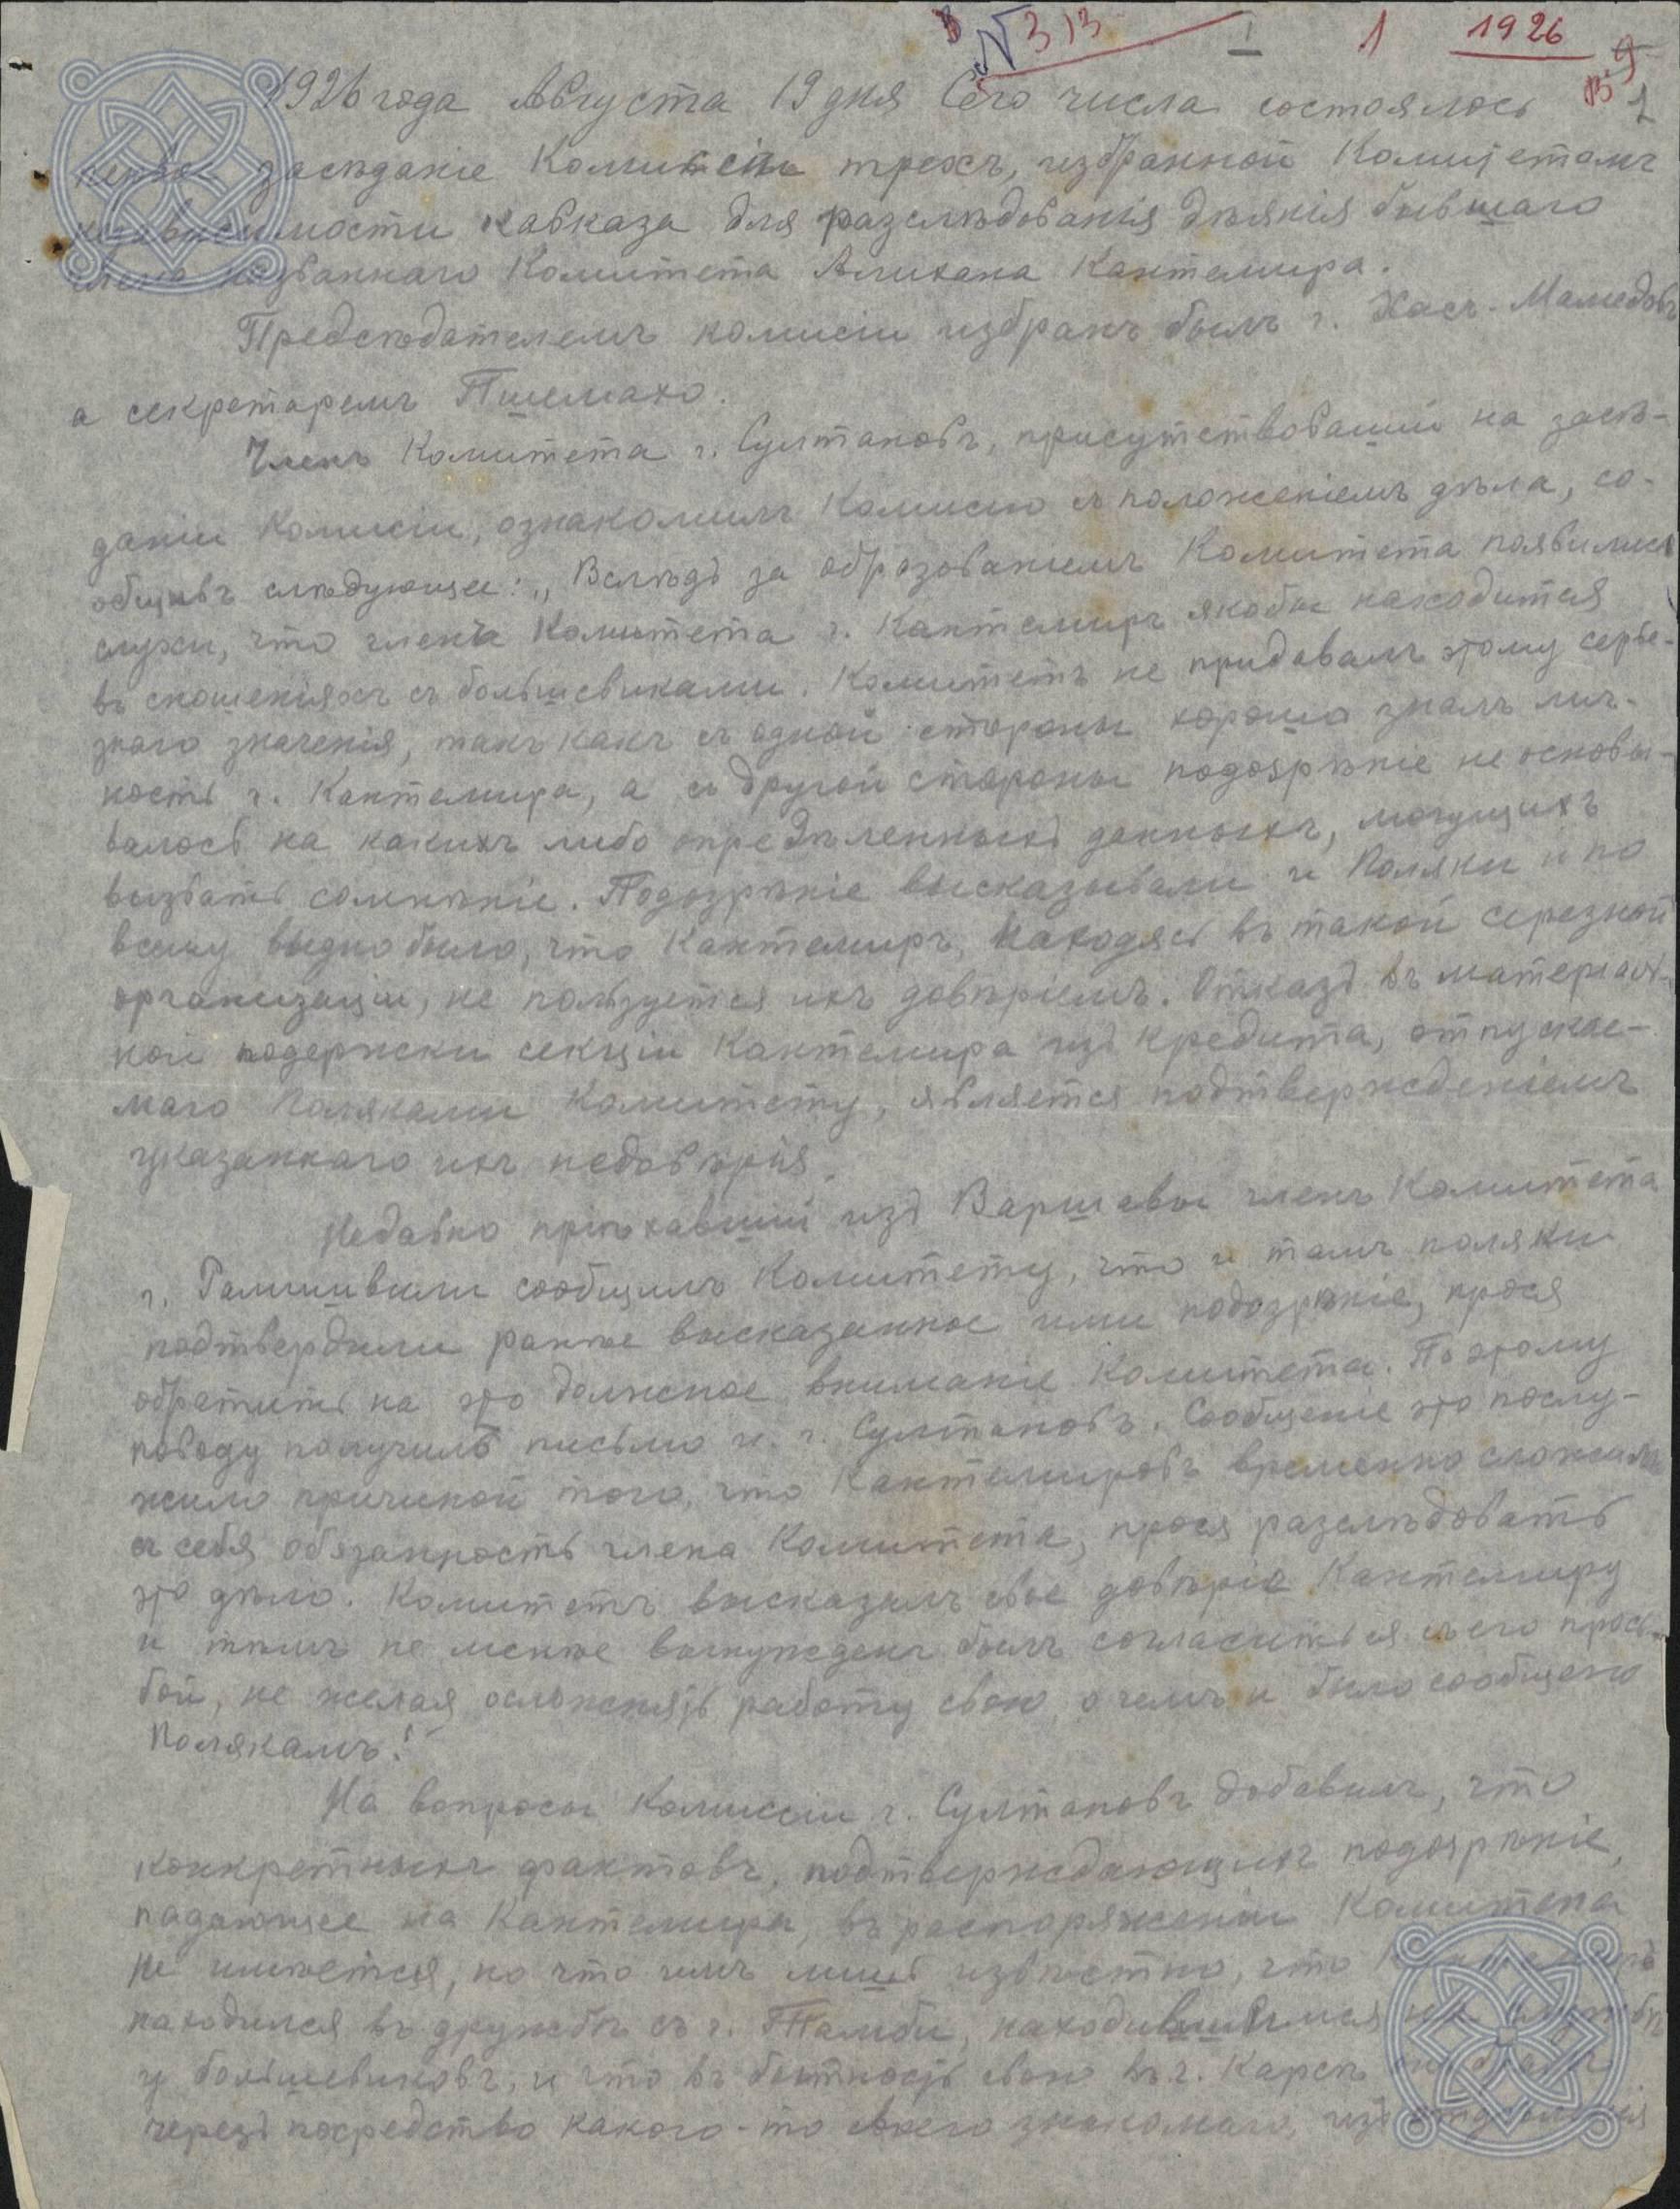 № 313 1 1926
1926 года Августа 19 дня Сего числа состоялось
первое заседаніе Комиссіи трехъ, избранной Комитетомъ
независимости Кавказа для разслѣдованія дѣянія бывшаго
члена названнаго Комитета Алихана Кантемира.
Предсѣдателемъ комисіи избранъ былъ г. Хасъ-Мамедовъ
а секретаремъ Пшемахо.
Членъ Комитета г. Султановъ, присутствовавшій на засѣ-
даніи Комисіи, ознакомилъ Комисію съ положеніемъ дѣла, со-
общивъ слѣдующее: „Вслѣдъ за образованіемъ Комитета появились
слухи, что членъ Комитета г. Кантемиръ якобы находится
въ сношеніяхъ съ большевиками. Комитетъ не придавалъ этому серье-
знаго значенія, такъ какъ съ одной стороны хорошо зналъ лич-
ность г. Кантемира, а съ другой стороны подозрѣніе не основы-
валось на какихъ либо опредѣленныхъ данныхъ, могущихъ
вызвать сомнѣніе. Подозрѣніе высказывали и Поляки и по
всему видно было, что Кантемиръ, находясь въ такой серезной
организаціи, не пользуется ихъ довѣріемъ. Отказъ въ матеріаль-
ной подержки секціи Кантемира изъ кредита, отпускае-
маго Поляками Комитету, является подтвержденіемъ
указаннаго ихъ недовѣрія.
Недавно пріѣхавшій изъ Варшавы членъ Комитета
г. Рамишвили сообщилъ Комитету, что и тамъ поляки
подтвердили ранѣе высказанное ими подозрѣніе, прося
обратить на это должное вниманіе Комитета. По этому
поводу получилъ письмо и г. Султановъ. Сообщеніе это послу-
жило причиной того, что Кантемировъ временно сложилъ
съ себя обязанность члена Комитета, прося разслѣдовать
это дѣло. Комитетъ высказалъ свое довѣріе Кантемиру
и тѣмъ не менѣе вынужденъ былъ согласиться съ его прось-
бой, не желая осложнять работу свою, о чемъ и было сообщено
Полякамъ."
На вопросы Комиссіи г. Султановъ добавилъ, что
конкретныхъ фактовъ, подтверждающихъ подозрѣніе,
падающее на Кантемира, въ распоряженіи Комитета
не имѣется, но что имъ лишь извѣстно, что Кантемиръ
находился въ дружбѣ съ г. Тамби, находившимся на службѣ
у большевиковъ, и что въ бытность свою въ г. Карсъ
черезъ посредство какого-то своего знакомаго, изъ